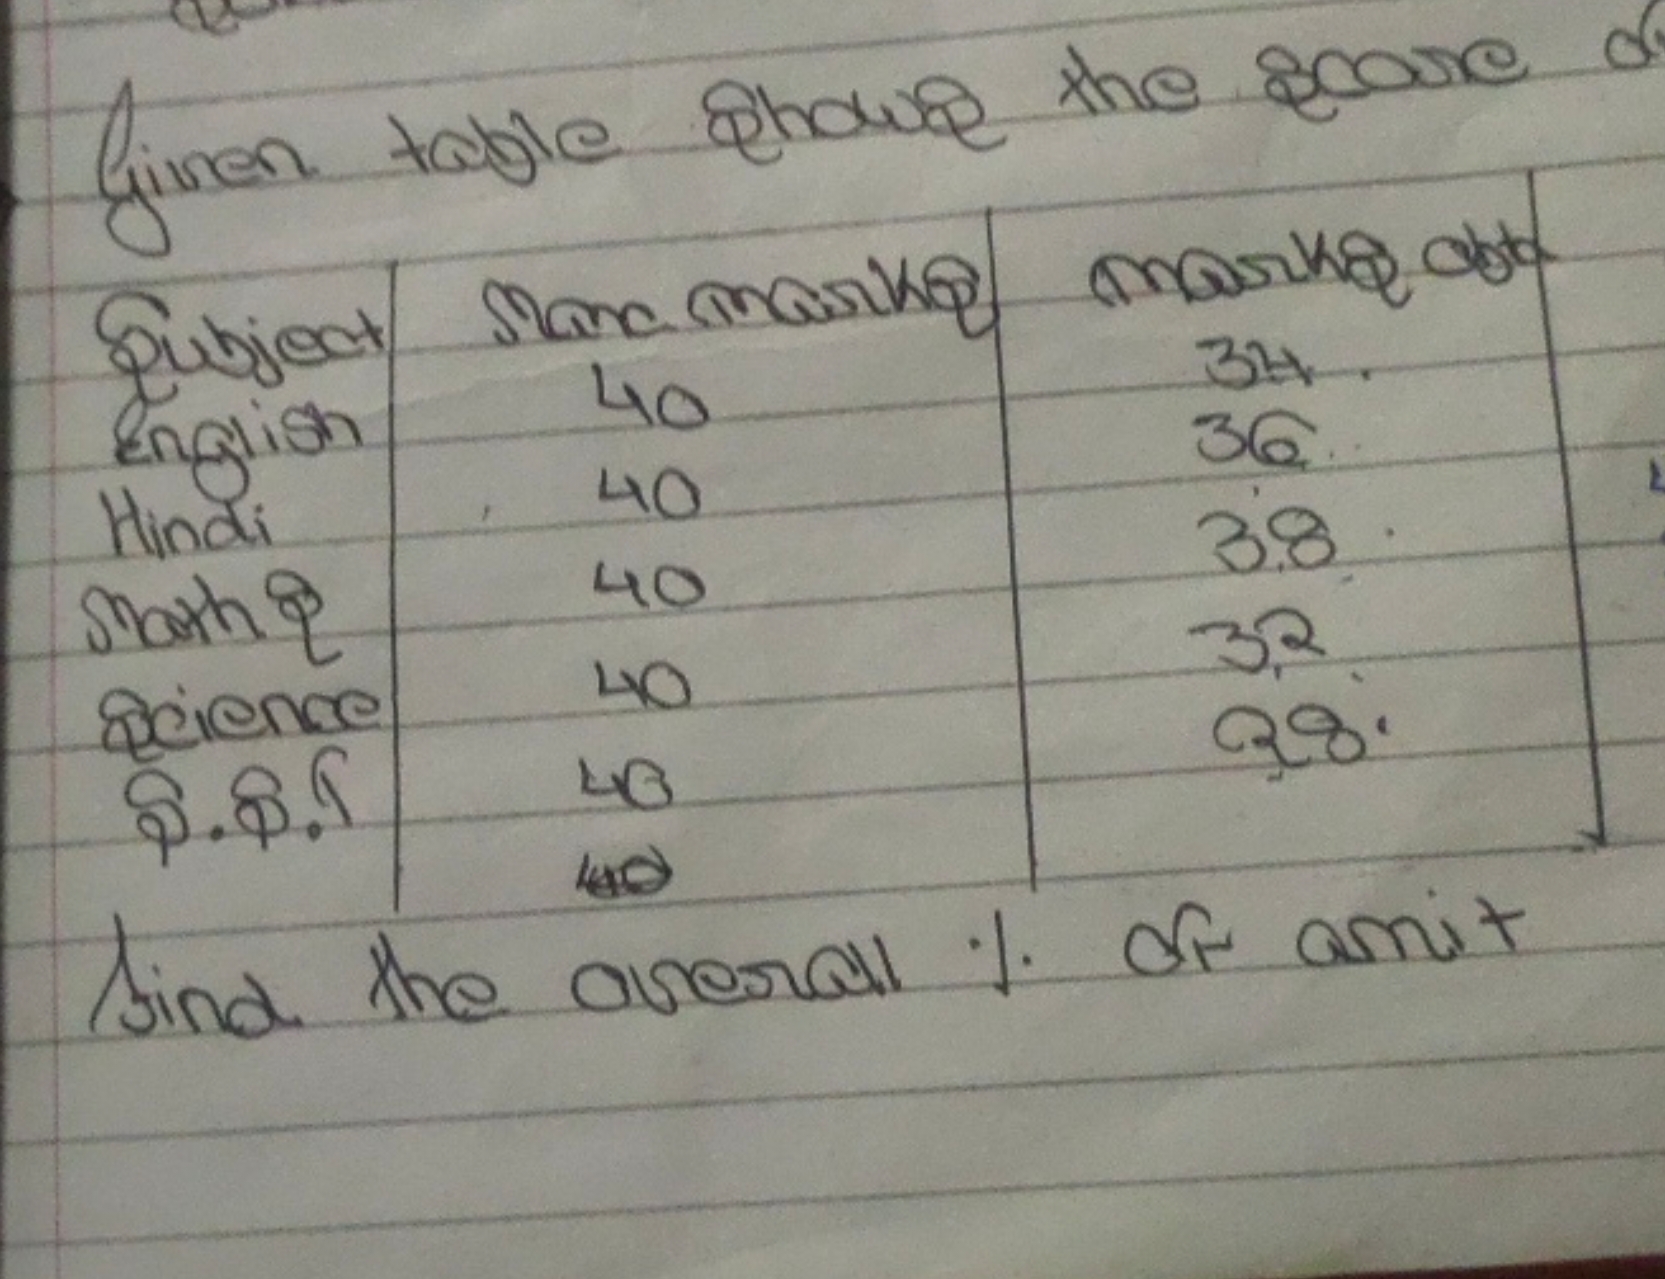 Given table shows the score of
Subject Max marks marks obtd
English 40 34
Hindi 40 36
Maths 40 38
Science 40 32
S.S.T 40 28
40
find the overall % of amit